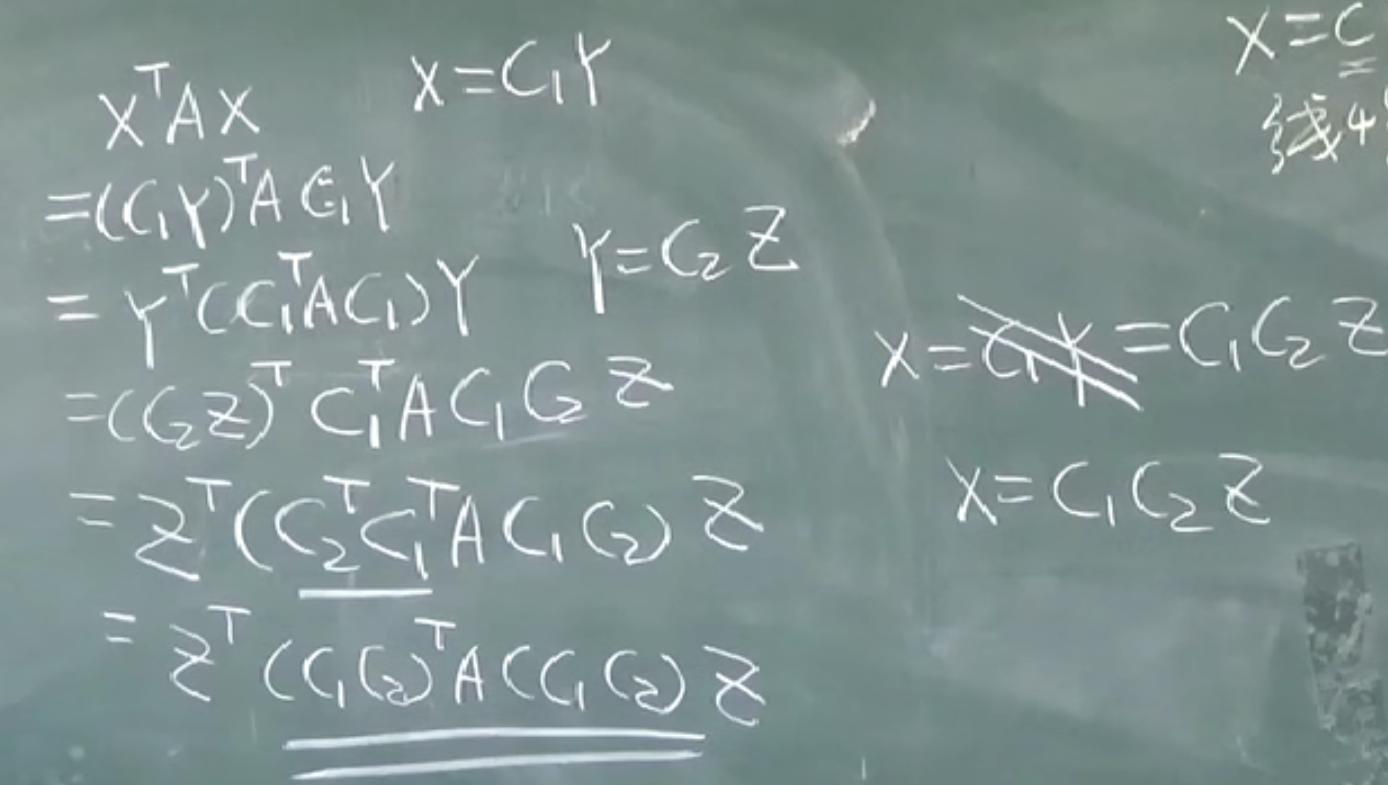 XᵀAX X=C₁Y
=(C₁Y)ᵀAC₁Y
=Yᵀ(C₁ᵀAC₁)Y Y=C₂Z
=(C₂Z)ᵀC₁ᵀAC₁C₂Z
=Zᵀ(C₂ᵀC₁ᵀAC₁C₂)Z
=Zᵀ(C₁C₂)ᵀA(C₁C₂)Z
X=C
线
X=C₁Y=C₁C₂Z
X=C₁C₂Z